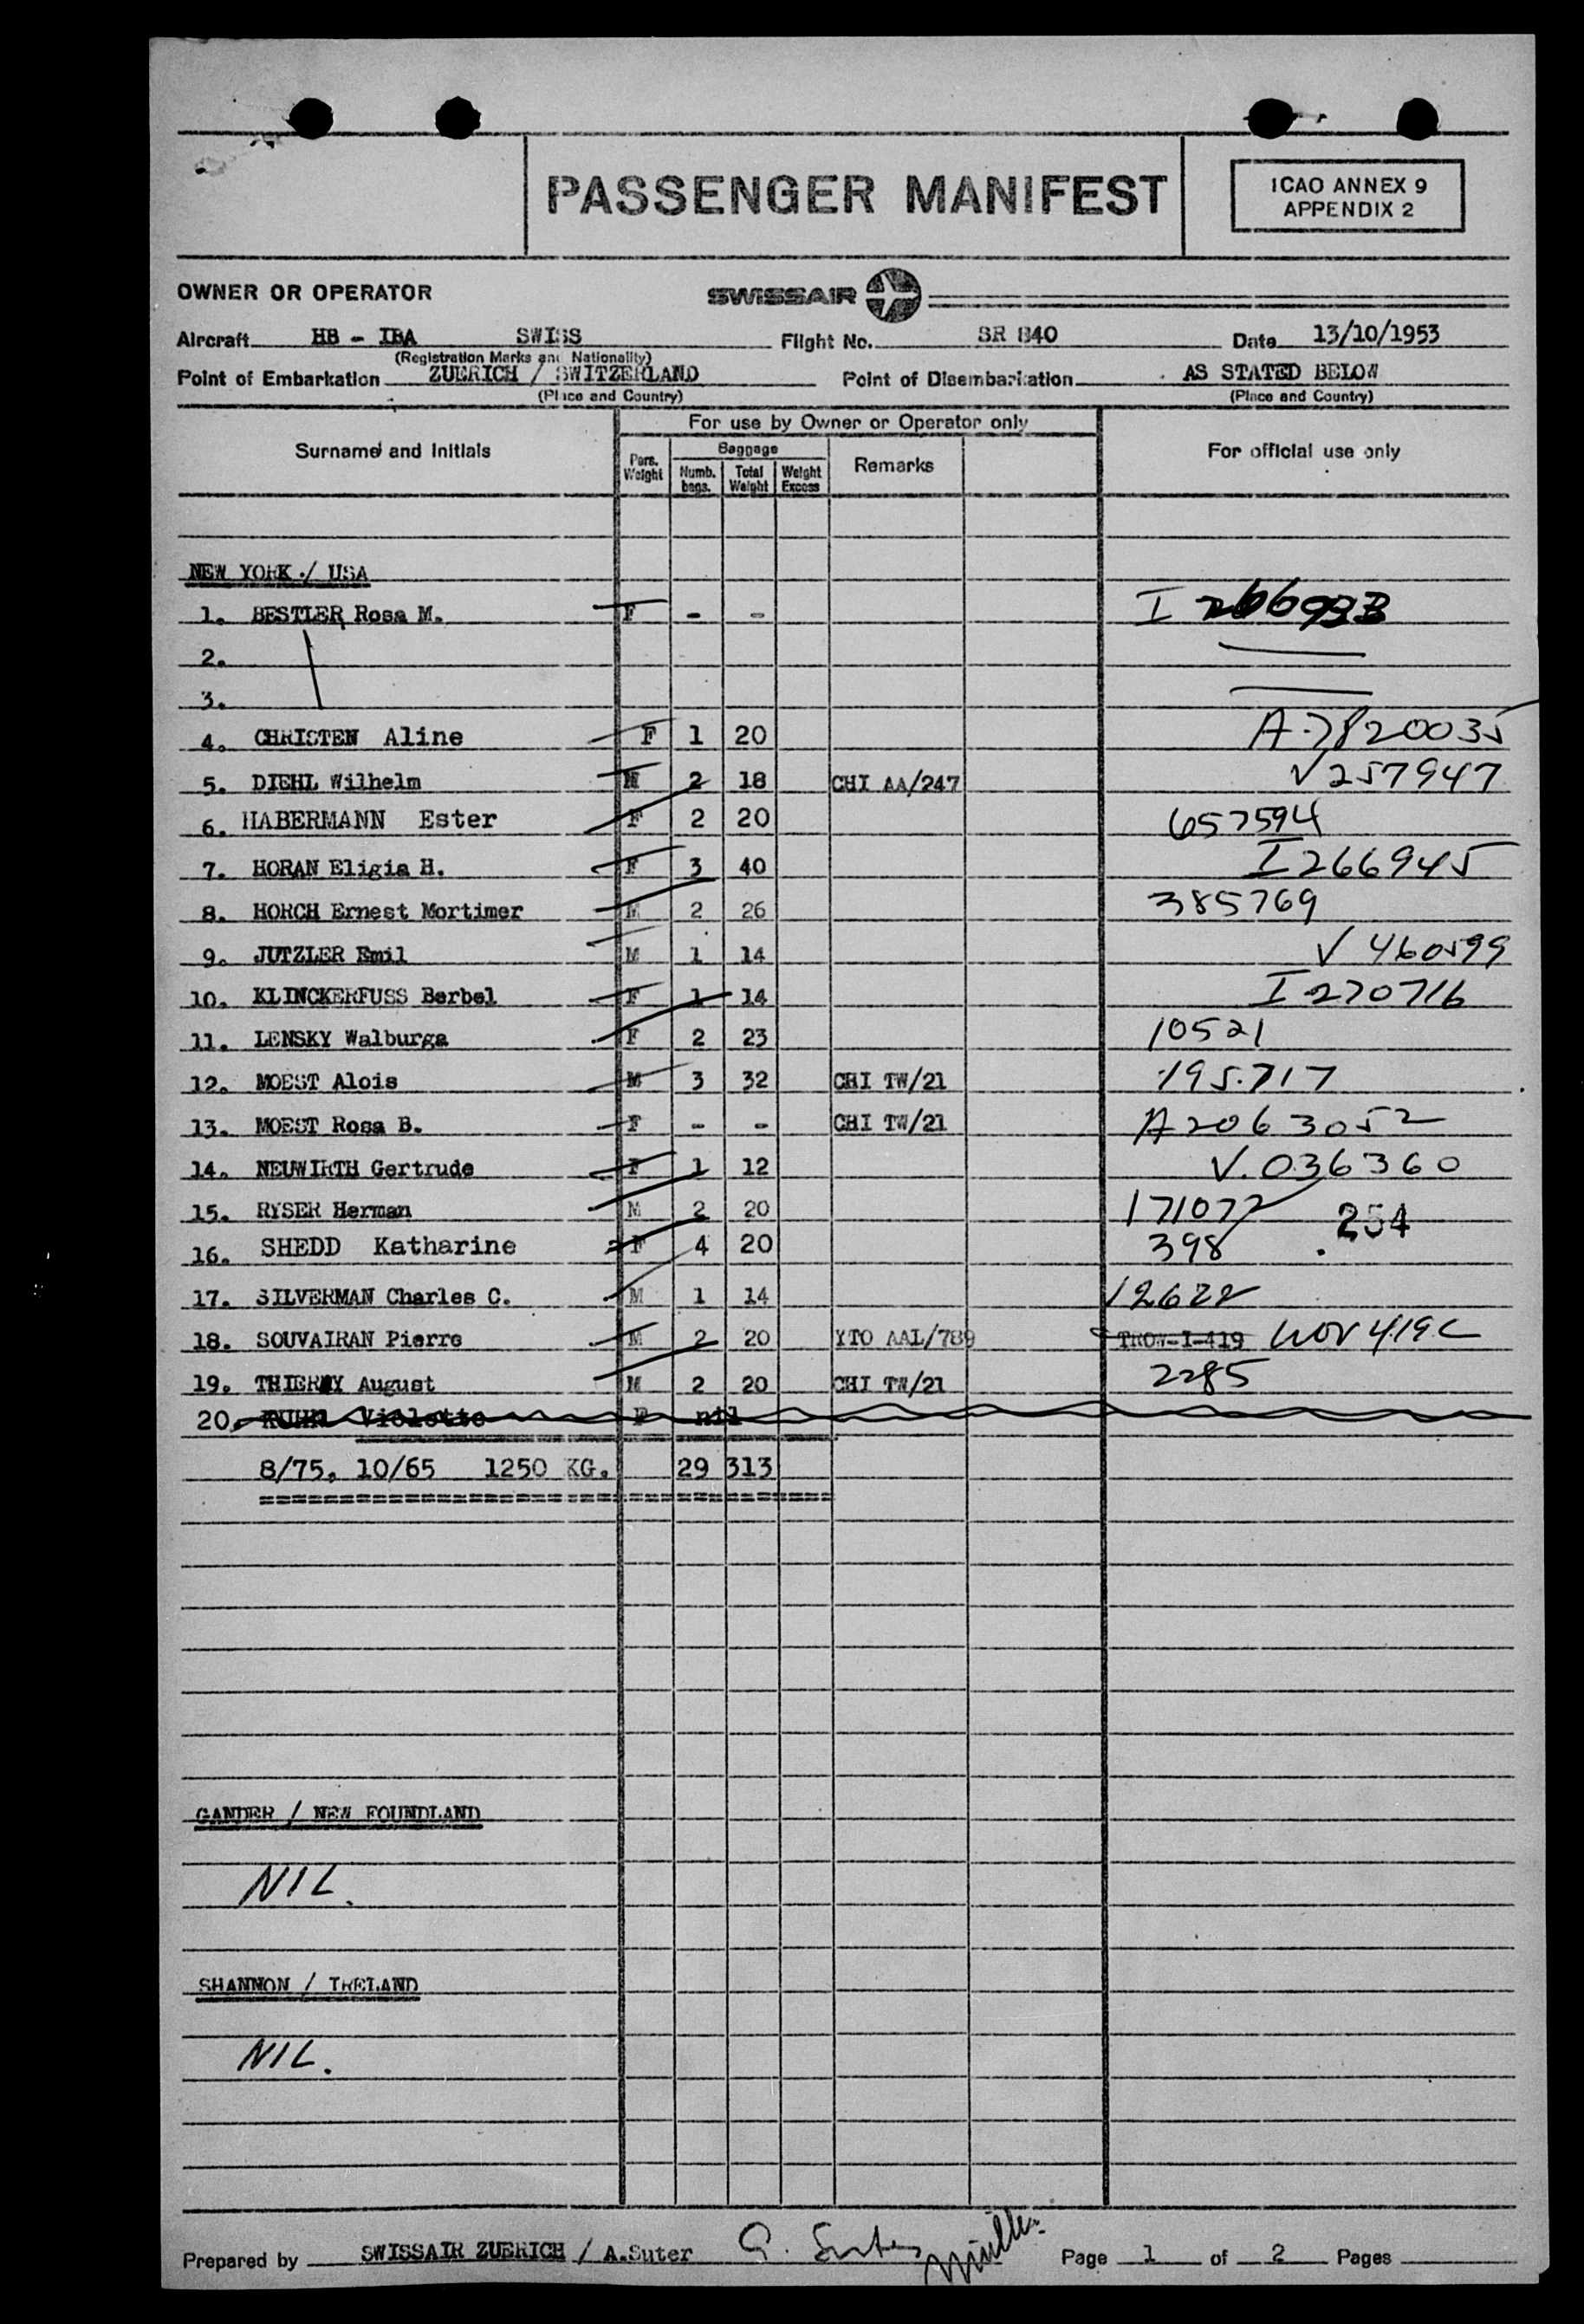 PASSENGER MANIFEST
ICAO ANNEX 9
APPENDIX 2
OWNER OR OPERATOR SWISSAIR
Aircraft HB - IBA SWISS Flight No. SR 840 Date 13/10/1953
(Registration Marks and Nationality)
Point of Embarkation ZUERICH / SWITZERLAND Point of Disembarkation AS STATED BELOW
(Place and Country) (Place and Country)
For use by Owner or Operator only
Surname and Initials Pers. Weight Baggage Numb. bags. Total Weight Weight Excess Remarks For official use only
NEW YORK / USA
1. BESTLER Rosa M. F - - I
2.
3.
4. CHRISTEN Aline F 1 20 A-7820035
5. DIEHL Wilhelm M 2 18 CHI AA/247 V 257947
6. HABERMANN Ester F 2 20 657594
7. HORAN Eligia H. F 3 40 I 266945
8. HORCH Ernest Mortimer M 2 26 385769
9. JUTZLER Emil M 1 14 V 460599
10. KLINCKERFUSS Berbel F 1 14 I 270716
11. LENSKY Walburga F 2 23 10521
12. MOEST Alois M 3 32 CHI TW/21 195.717
13. MOEST Rosa B. F - - CHI TW/21 A2063052
14. NEUWIRTH Gertrude F 1 12 V. 036360
15. RYSER Herman M 2 20 171072 254
16. SHEDD Katharine F 4 20 398
17. SILVERMAN Charles C. M 1 14 12622
18. SOUVAIRAN Pierre M 2 20 YTO AAL/789 TROV-I-419
19. THIERMY August M 2 20 CHI TW/21 2285
20. Violette F nil
8/75, 10/65 1250 KG. 29 313
GANDER / NEW FOUNDLAND
NIL.
SHANNON / IRELAND
NIL.
Prepared by SWISSAIR ZUERICH / A.Suter A. Suter Müller Page 1 of 2 Pages